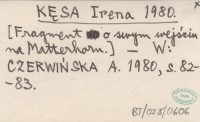 KĘSA Irena 1980.
[Fragment o swym wejściu
na Matterhorn.] — W:
CZERWIŃSKA A. 1980, s. 82-
-83.
BT/025/0606